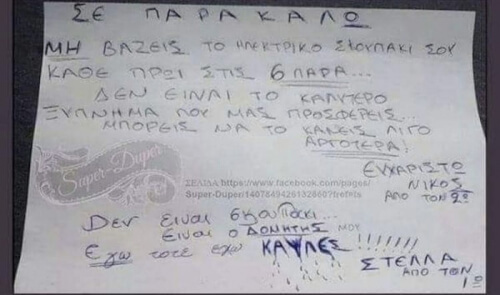 ΣΕ ΠΑΡΑΚΑΛΩ
ΜΗ ΒΑΖΕΙΣ ΤΟ ΗΛΕΚΤΡΙΚΟ ΣΚΟΥΠΑΚΙ ΣΟΥ
ΚΑΘΕ ΠΡΩΙ ΣΤΙΣ 6 ΠΑΡΑ...
ΔΕΝ ΕΙΝΑΙ ΤΟ ΚΑΛΥΤΕΡΟ
ΞΥΠΝΗΜΑ ΠΟΥ ΜΑΣ ΠΡΟΣΦΕΡΕΙΣ...
ΜΠΟΡΕΙΣ ΝΑ ΤΟ ΚΑΝΕΙΣ ΛΙΓΟ
ΑΡΓΟΤΕΡΑ!
ΕΥΧΑΡΙΣΤΩ
ΝΙΚΟΣ
ΑΠΟ ΤΟΝ 2ο
Super-Duper
ΣΕΛΙΔΑ https://www.facebook.com/pages/
Super-Duper/1407849426132860?fref=ts
Δεν ειναι σκουπακι...
Ειναι ο ΔΟΝΗΤΗΣ μου
Εγω τοτε εχω ΚΑΥΛΕΣ!!!!!!!
ΣΤΕΛΛΑ
ΑΠΟ ΤΟΝ
1ο